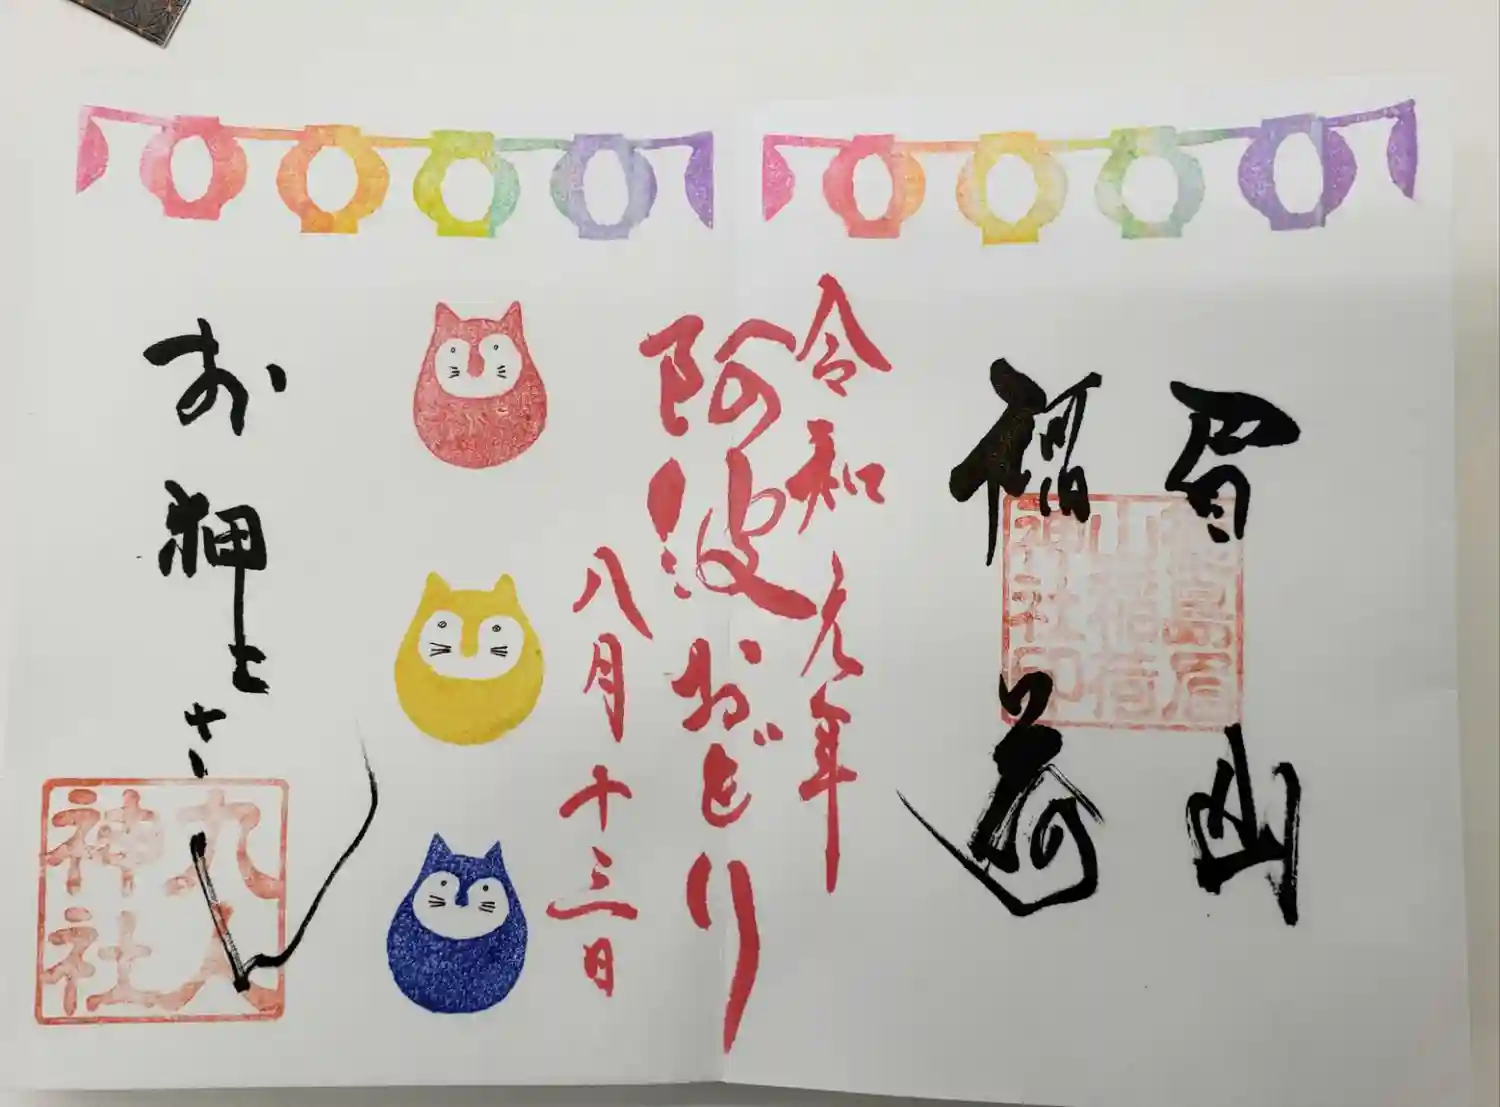 眉山
稲荷
徳島眉
山稲荷
神社印
令和元年
阿波おどり
八月十三日
お狸さん
神社